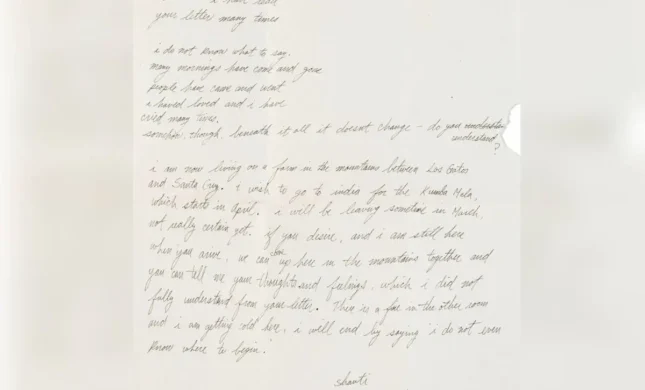 i have read
your letter many times
i do not know what to say.
many mornings have come and gone
people have came and went
i haved loved and i have
cried many times.
somehow, though, beneath it all it doesnt change – do you understand
understand?
i am now living on a farm in the mountains between Los Gatos
and Santa Cruz. i wish to go to india for the Kumba Mela,
which starts in April. i will be leaving sometime in March,
not really certain yet. if you desire, and i am still here
when you arive, we can up here in the mountains together and
you can tell me your thoughts and feelings, which i did not
fully understand from your letter. There is a fire in the other room
and i am getting cold here. i will end by saying i do not even
know where to begin.
shanti